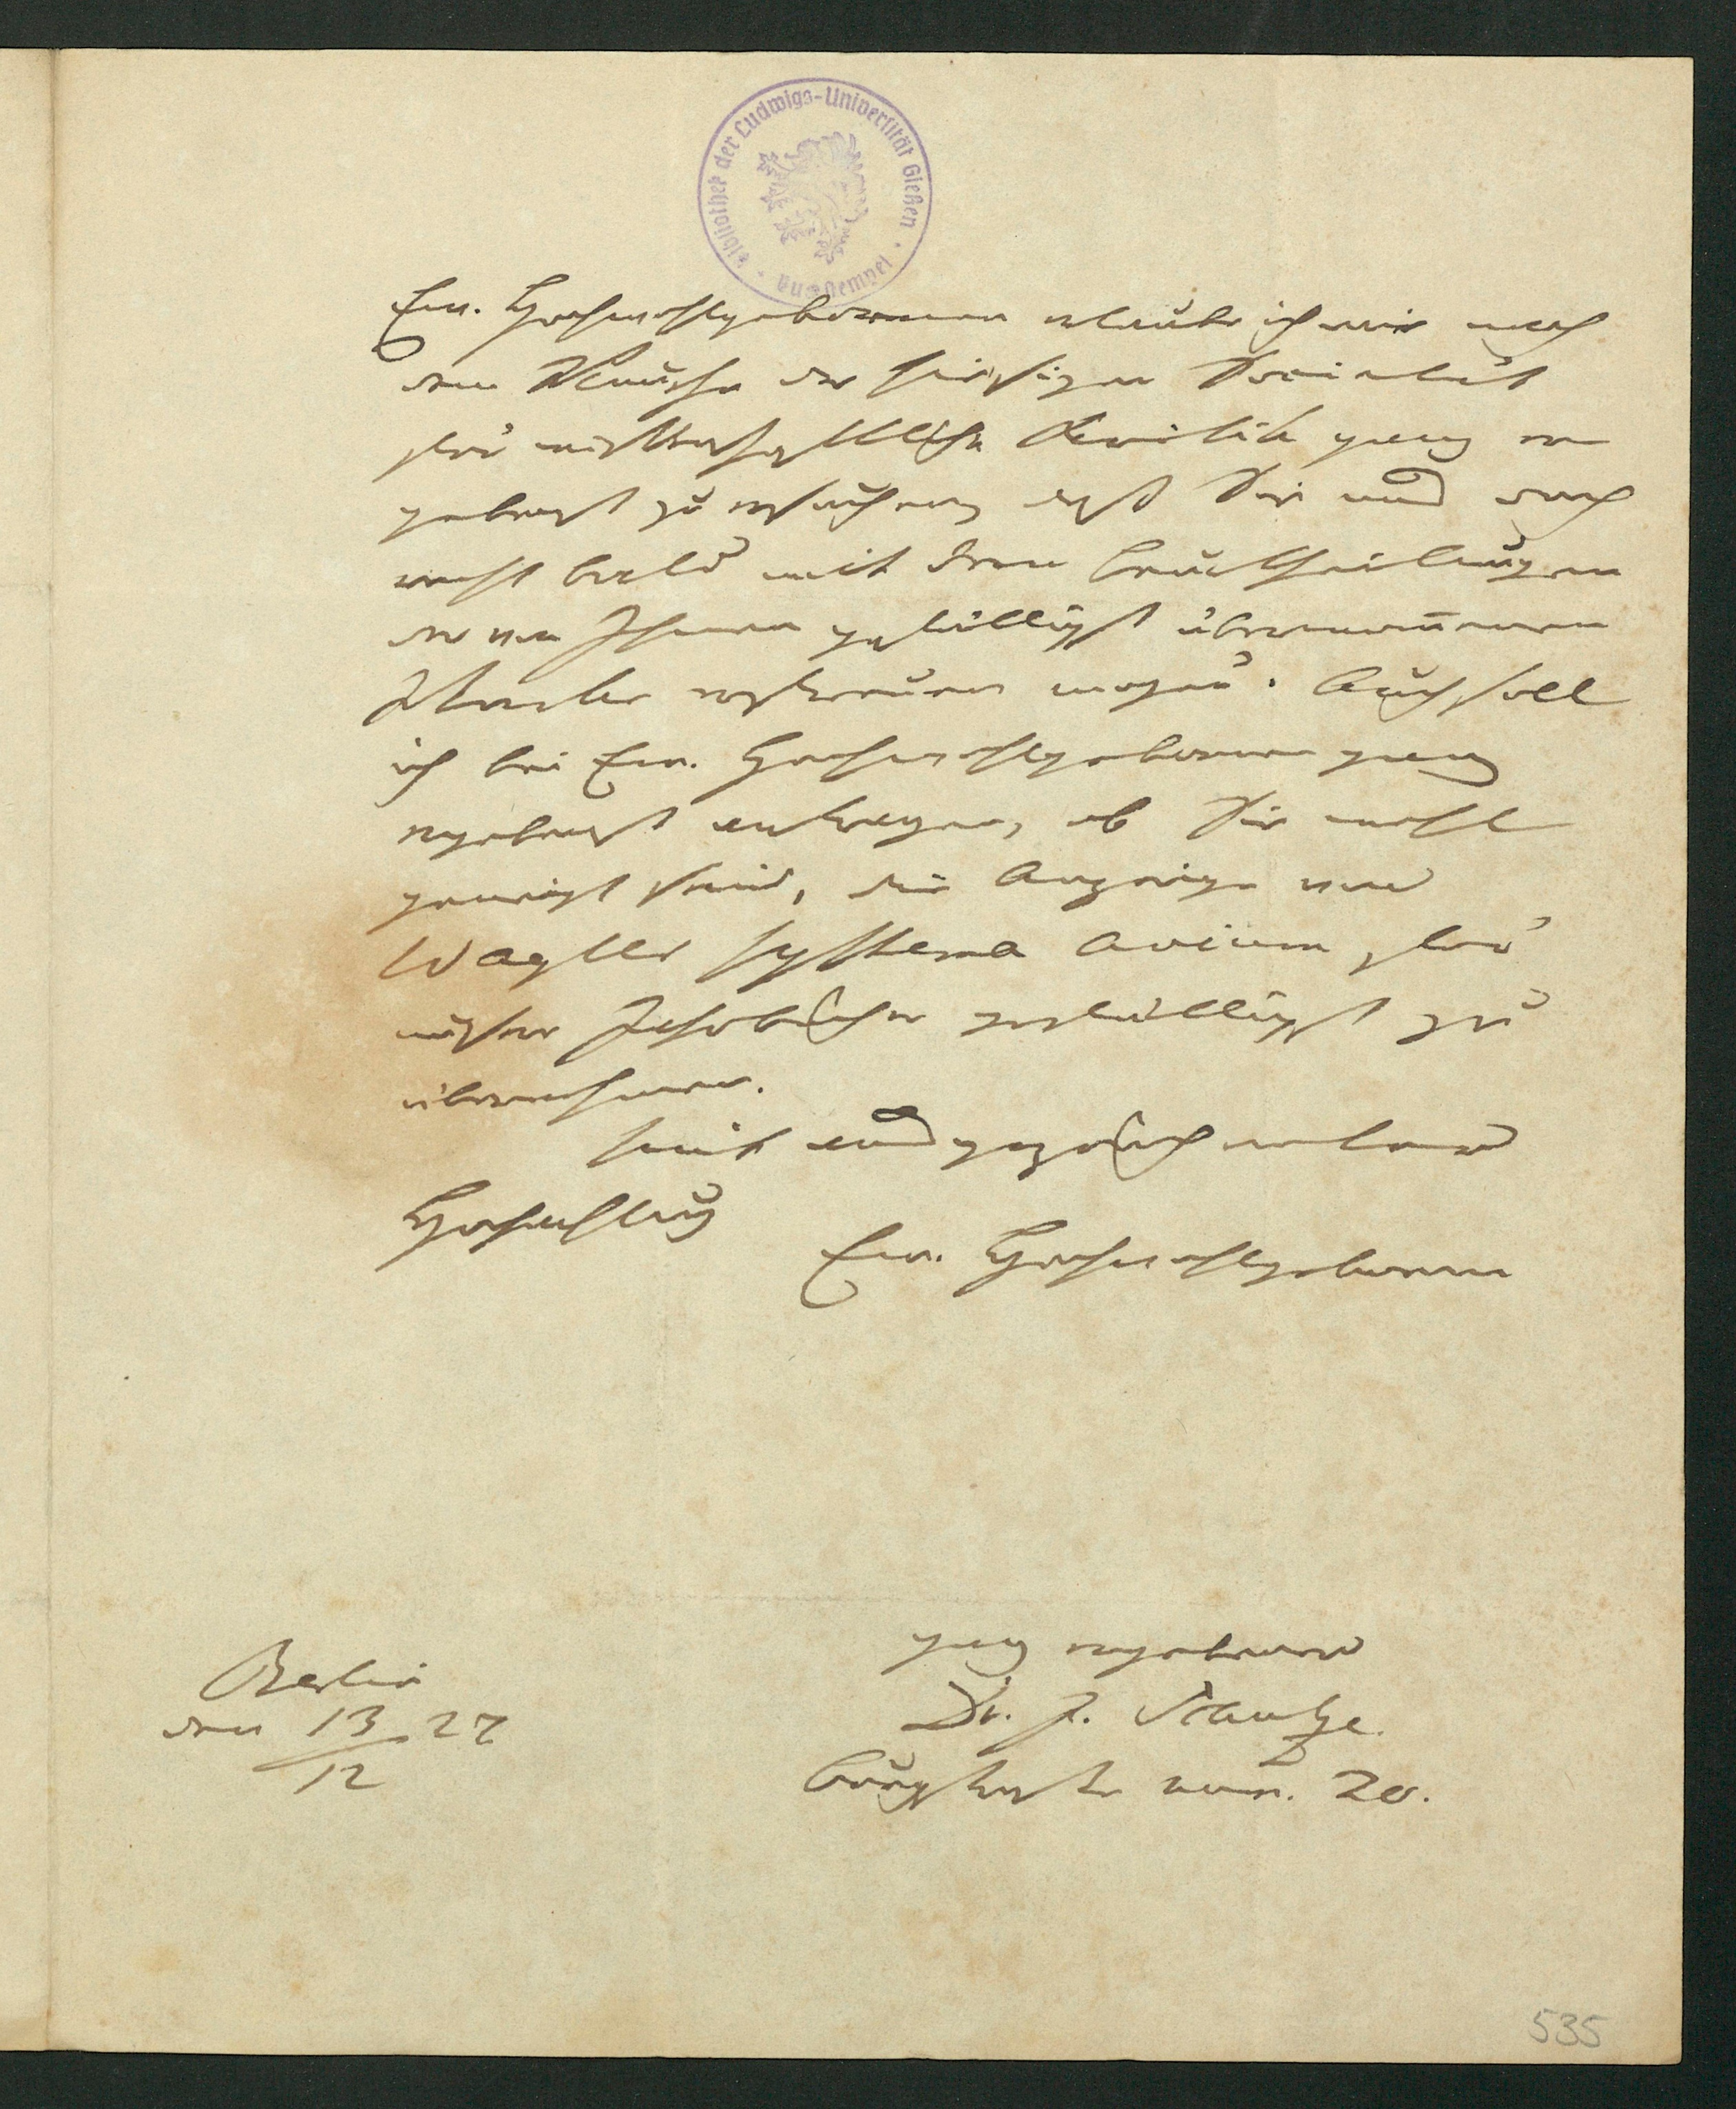 Bibliothek der Ludwigs-Universität Gießen
Ew. Hochwohlgeboren erlaube ich mir nach
dem Wunsche der hiesigen Societät
für wissenschaftliche Kritik ganz er
gebenst zu ersuchen, daß Sie uns doch
recht bald mit den Beurtheilungen
der von Ihnen gefälligst übernommenen
Werke erfreuen mögen. Auch soll
ich bei Ew. Hochwohlgeboren ganz
ergebenst anfragen, ob Sie wohl
geneigt sind, die Anzeige von
Wagler systema avium für
unsere Jahrbücher gefälligst zu
übernehmen.
Mit ausgezeichneter
Hochachtung
Ew. Hochwohlgeboren
ganz ergebener
Dr. F.
20.
Berlin
den 13/12 27
535